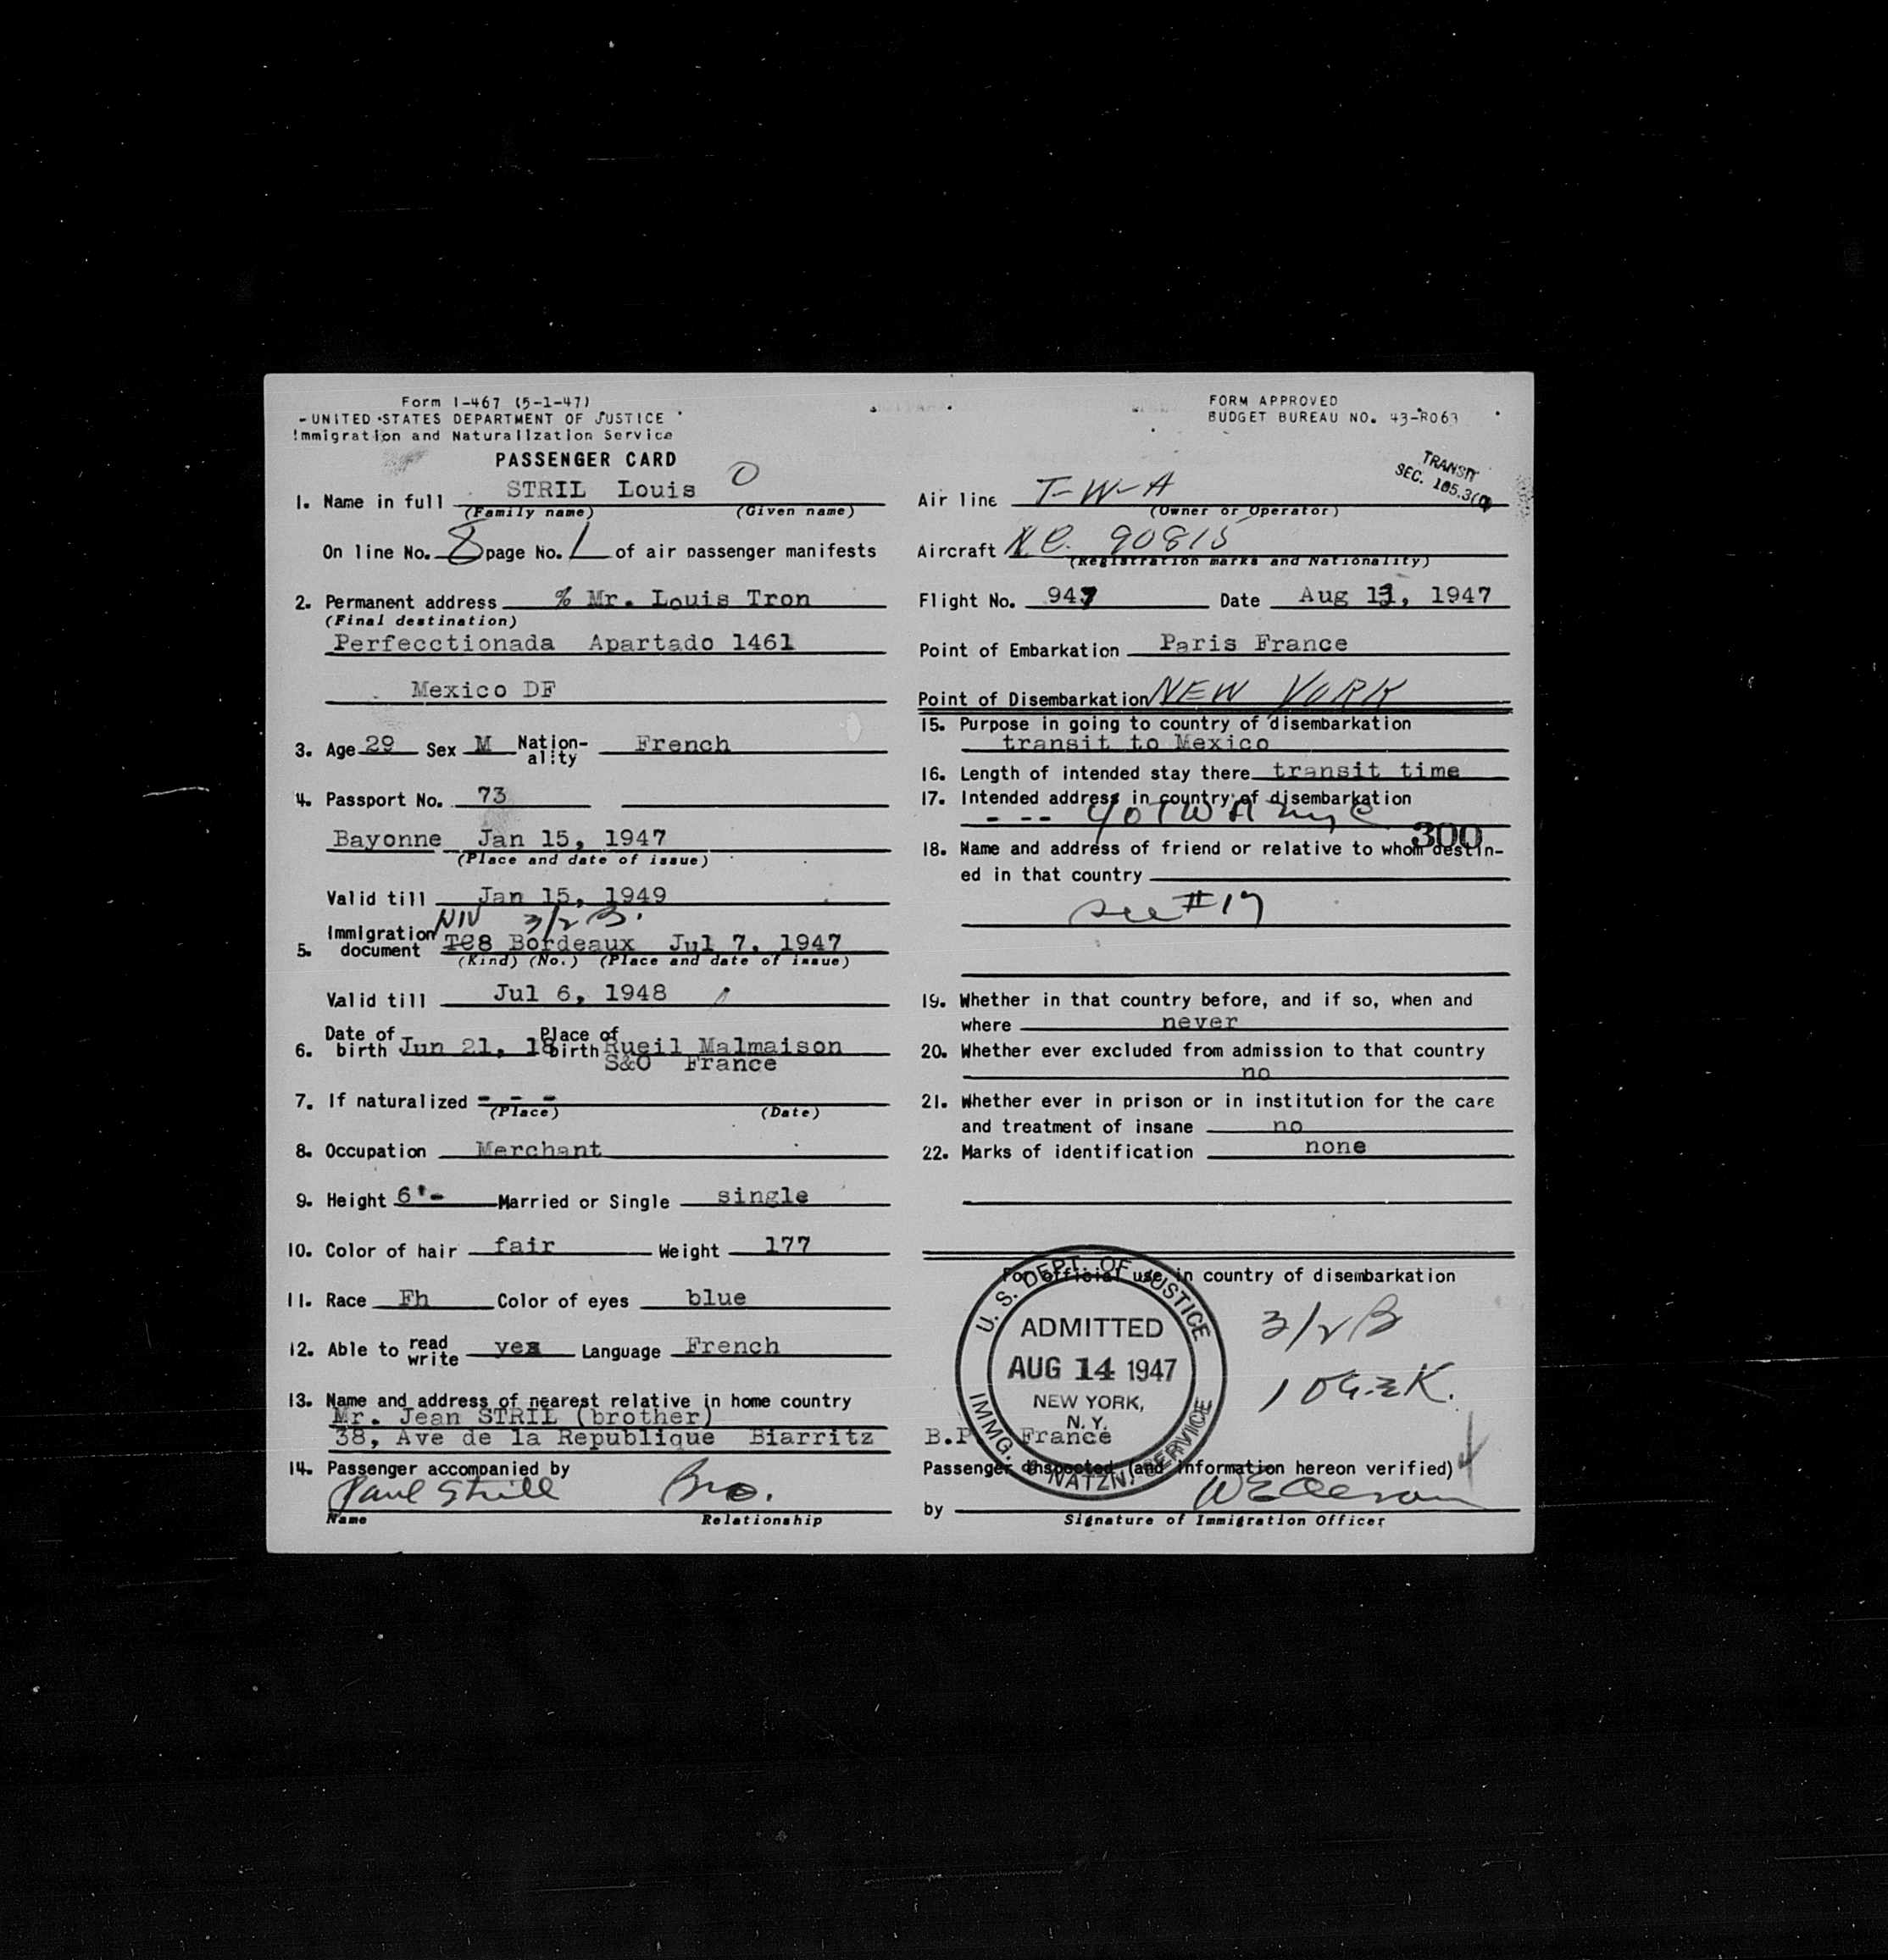 Form I-467 (5-1-47)
UNITED STATES DEPARTMENT OF JUSTICE
Immigration and Naturalization Service
PASSENGER CARD
1. Name in full STRIL Louis O
(Family name) (Given name)
On line No. 8 page No. 1 of air passenger manifests
2. Permanent address % Mr. Louis Tron
(Final destination)
Perfecctionada Apartado 1461
Mexico DF
3. Age 29 Sex M Nation-ality French
4. Passport No. 73
Bayonne Jan 15, 1947
(Place and date of issue)
Valid till Jan 15, 1949
NIV 3/2 B.
5. Immigration document TC8 Bordeaux Jul 7. 1947
(Kind) (No.) (Place and date of issue)
Valid till Jul 6, 1948
6. Date of birth Jun 21, 18 Place of birth Rueil Malmaison
S&O France
7. If naturalized - - -
(Place) (Date)
8. Occupation Merchant
9. Height 6'- Married or Single single
10. Color of hair fair Weight 177
11. Race Fh Color of eyes blue
12. Able to read write yes Language French
13. Name and address of nearest relative in home country
Mr. Jean STRIL (brother)
38, Ave de la Republique Biarritz B.P. France
14. Passenger accompanied by
Paul Strill Bro.
Name Relationship
FORM APPROVED
BUDGET BUREAU NO. 43-R063
TRANSIT
SEC. 105.3(
Air line T-W-A
(Owner or Operator)
Aircraft N.C. 90815
(Registration marks and Nationality)
Flight No. 947 Date Aug 13, 1947
Point of Embarkation Paris France
Point of Disembarkation NEW YORK
15. Purpose in going to country of disembarkation
transit to Mexico
16. Length of intended stay there transit time
17. Intended address in country of disembarkation
- - - c/o TWA NYC
300
18. Name and address of friend or relative to whom destin-
ed in that country
see #17
19. Whether in that country before, and if so, when and
where never
20. Whether ever excluded from admission to that country
no
21. Whether ever in prison or in institution for the care
and treatment of insane no
22. Marks of identification none
For official use in country of disembarkation
U. S. DEPT. OF JUSTICE
ADMITTED
AUG 14 1947
NEW YORK,
N.Y.
IMMG. & NATZN. SERVICE
3/2 B
Passenger inspected (and information hereon verified)
by
Signature of Immigration Officer